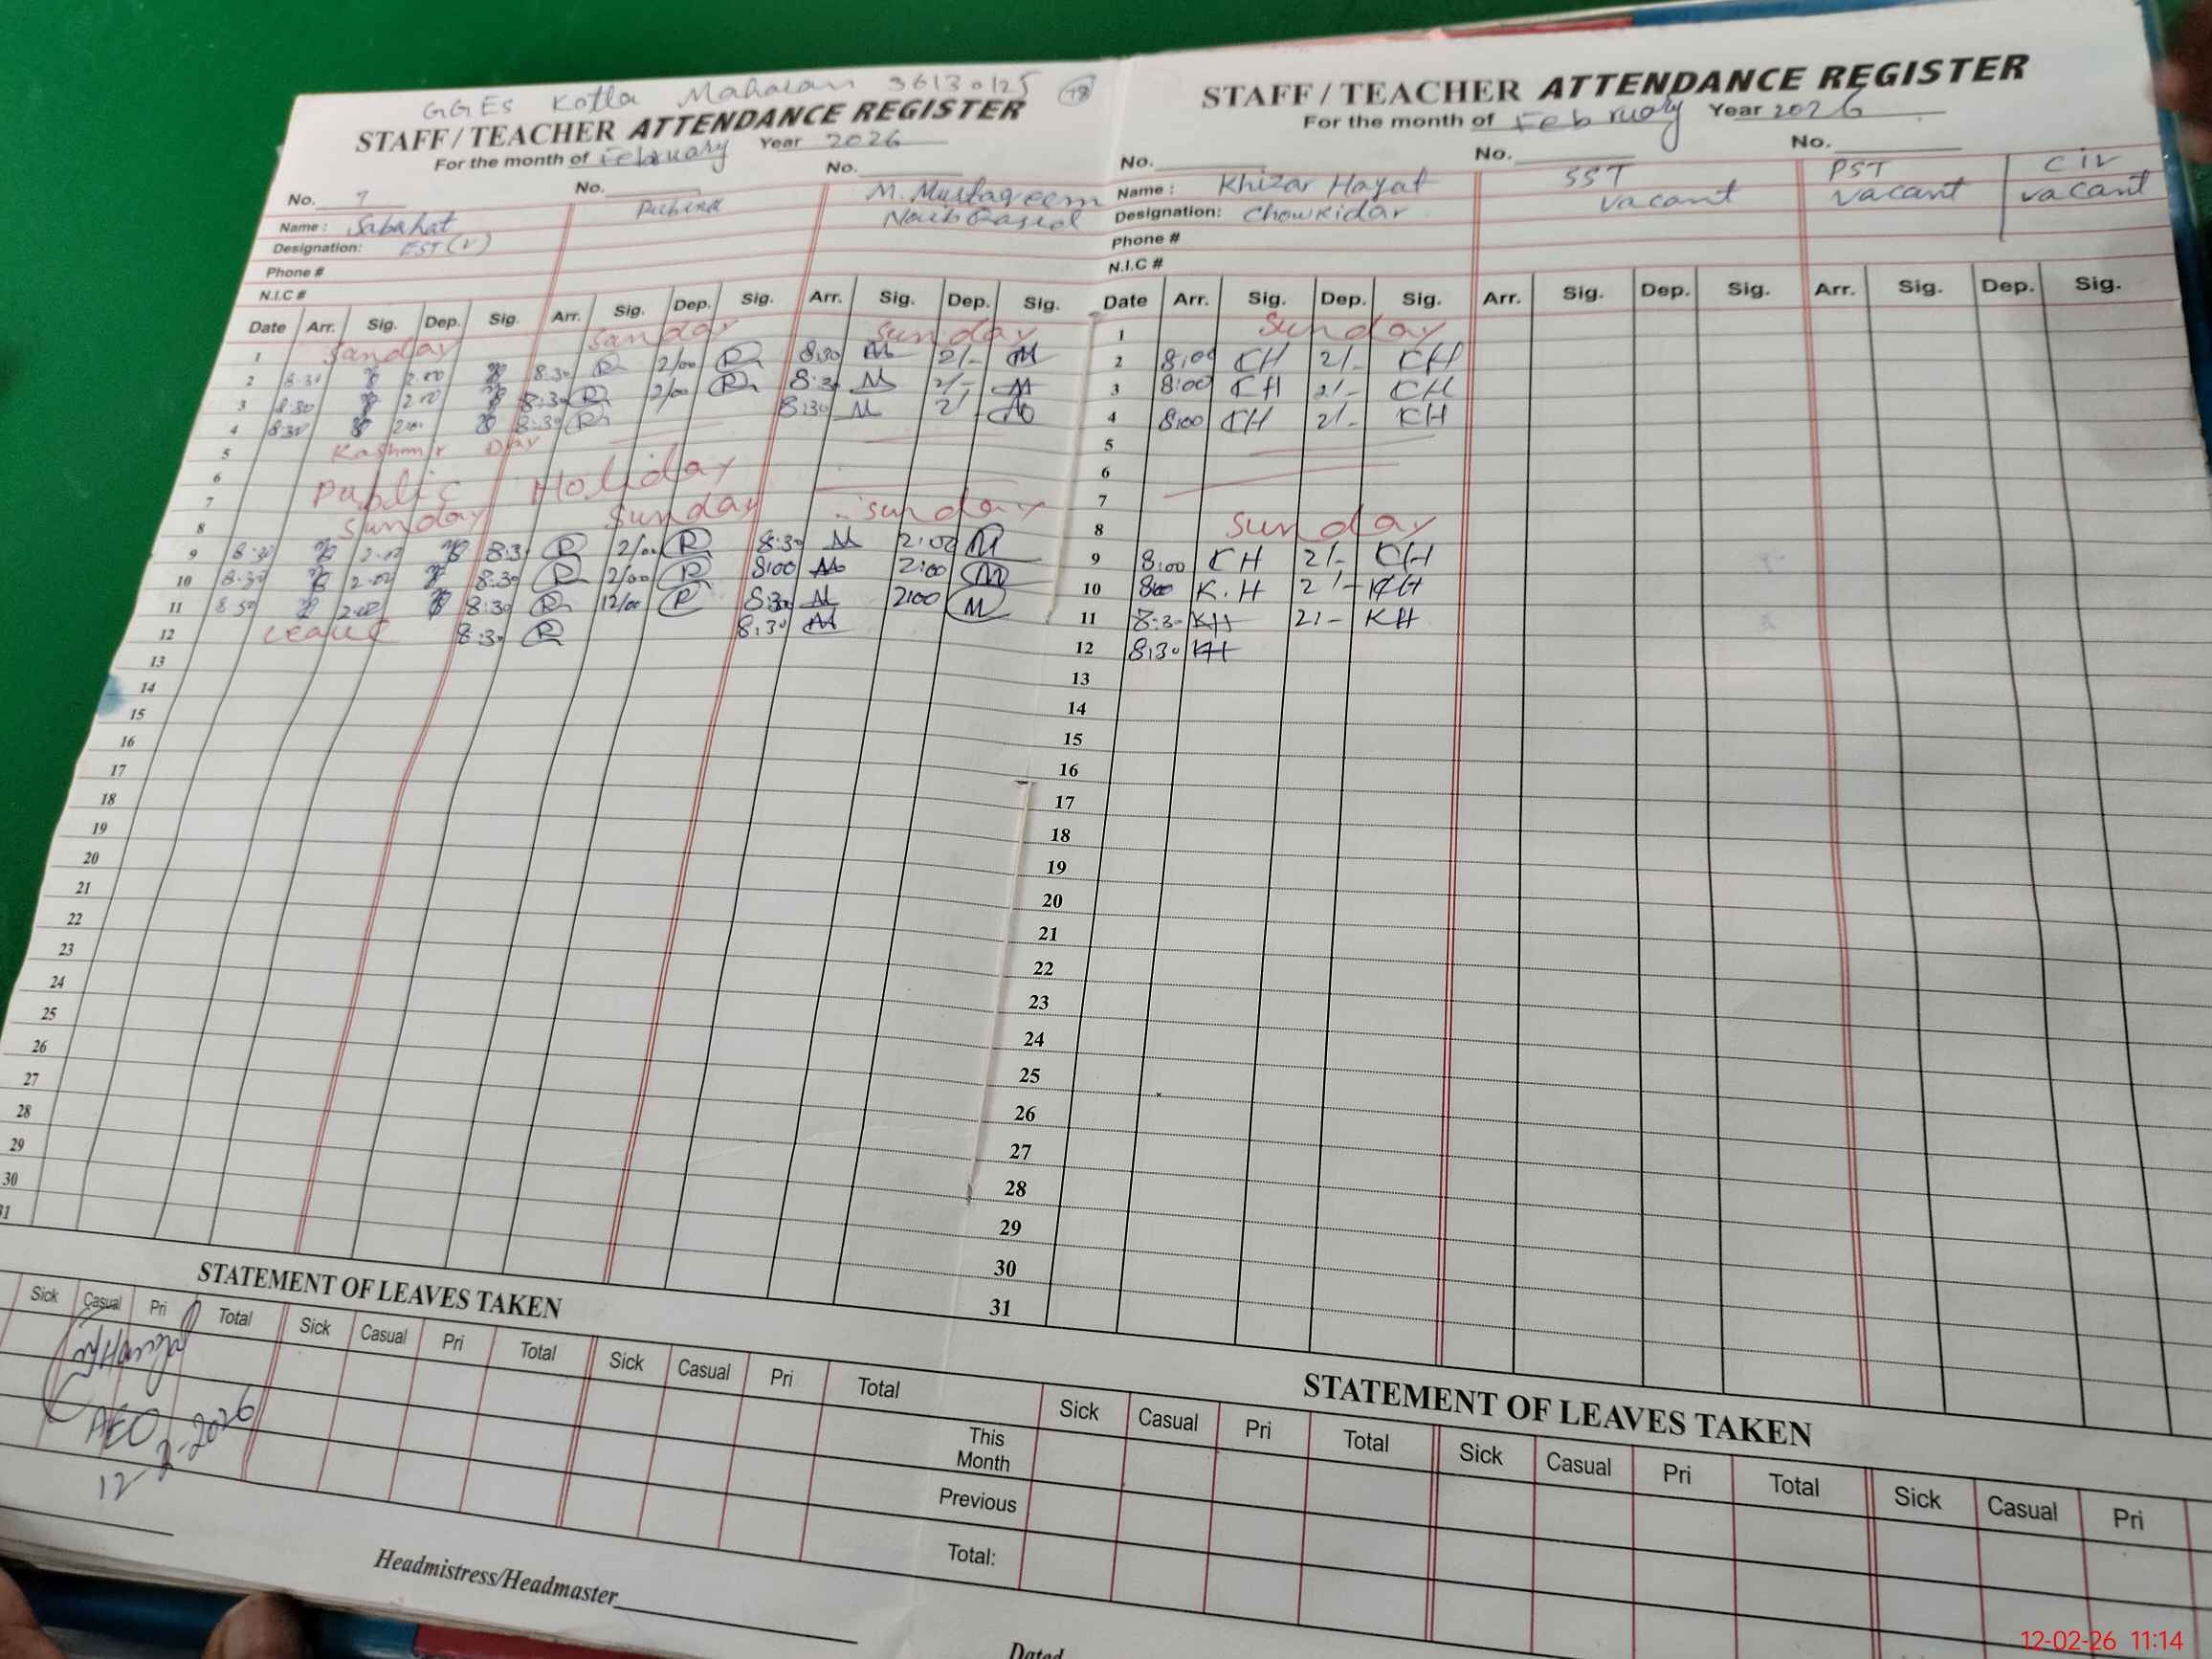 GGES Kotla Maharan 36130125 48
STAFF / TEACHER ATTENDANCE REGISTER
For the month of February Year 2026
No. 7 No. No.
Name : Sabahat Rubina M. Mustaqeem
Designation: EST (V) Naib Qasid
Phone #
N.I.C #
Date Arr. Sig. Dep. Sig. Arr. Sig. Dep. Sig. Arr. Sig. Dep. Sig.
1 Sunday Sunday Sunday
2 8:30 2.00 8:30 R 2/00 R 8:30 M 2/- M
3 8:30 2.00 8:30 R 2/00 R 8:30 M 2/- M
4 8:30 2.00 8:30 R 8:30 M 2/- M
5 Kashmir Day
6
7 Public Holiday
8 Sunday Sunday Sunday
9 8:30 2.00 8:30 R 2/00 R 8:30 M 2:00 M
10 8:30 2.00 8:30 R 2/00 R 8:00 M 2:00 M
11 8:30 2.00 8:30 R 12/00 R 8:30 M 2:00 M
12 Leave 8:30 R 8:30 M
13
14
15
16
17
18
19
20
21
22
23
24
25
26
27
28
29
30
31
STATEMENT OF LEAVES TAKEN
Sick Casual Pri Total Sick Casual Pri Total Sick Casual Pri Total
AEO
12-2-2026
Headmistress/Headmaster
STAFF / TEACHER ATTENDANCE REGISTER
For the month of February Year 2026
No. No. No.
Name : Khizar Hayat SST vacant PST vacant CIV vacant
Designation: Chowkidar
Phone #
N.I.C #
Date Arr. Sig. Dep. Sig. Arr. Sig. Dep. Sig. Arr. Sig. Dep. Sig.
1 Sunday
2 8:00 KH 2/- KH
3 8:00 KH 2/- KH
4 8:00 KH 2/- KH
5
6
7
8 Sunday
9 8:00 KH 2/- KH
10 8:00 K.H 2/- KH
11 8:30 KH 2/- KH
12 8:30 KH
13
14
15
16
17
18
19
20
21
22
23
24
25
26
27
28
29
30
31
STATEMENT OF LEAVES TAKEN
Sick Casual Pri Total Sick Casual Pri Total Sick Casual Pri
This Month
Previous
Total:
Dated
12-02-26 11:14